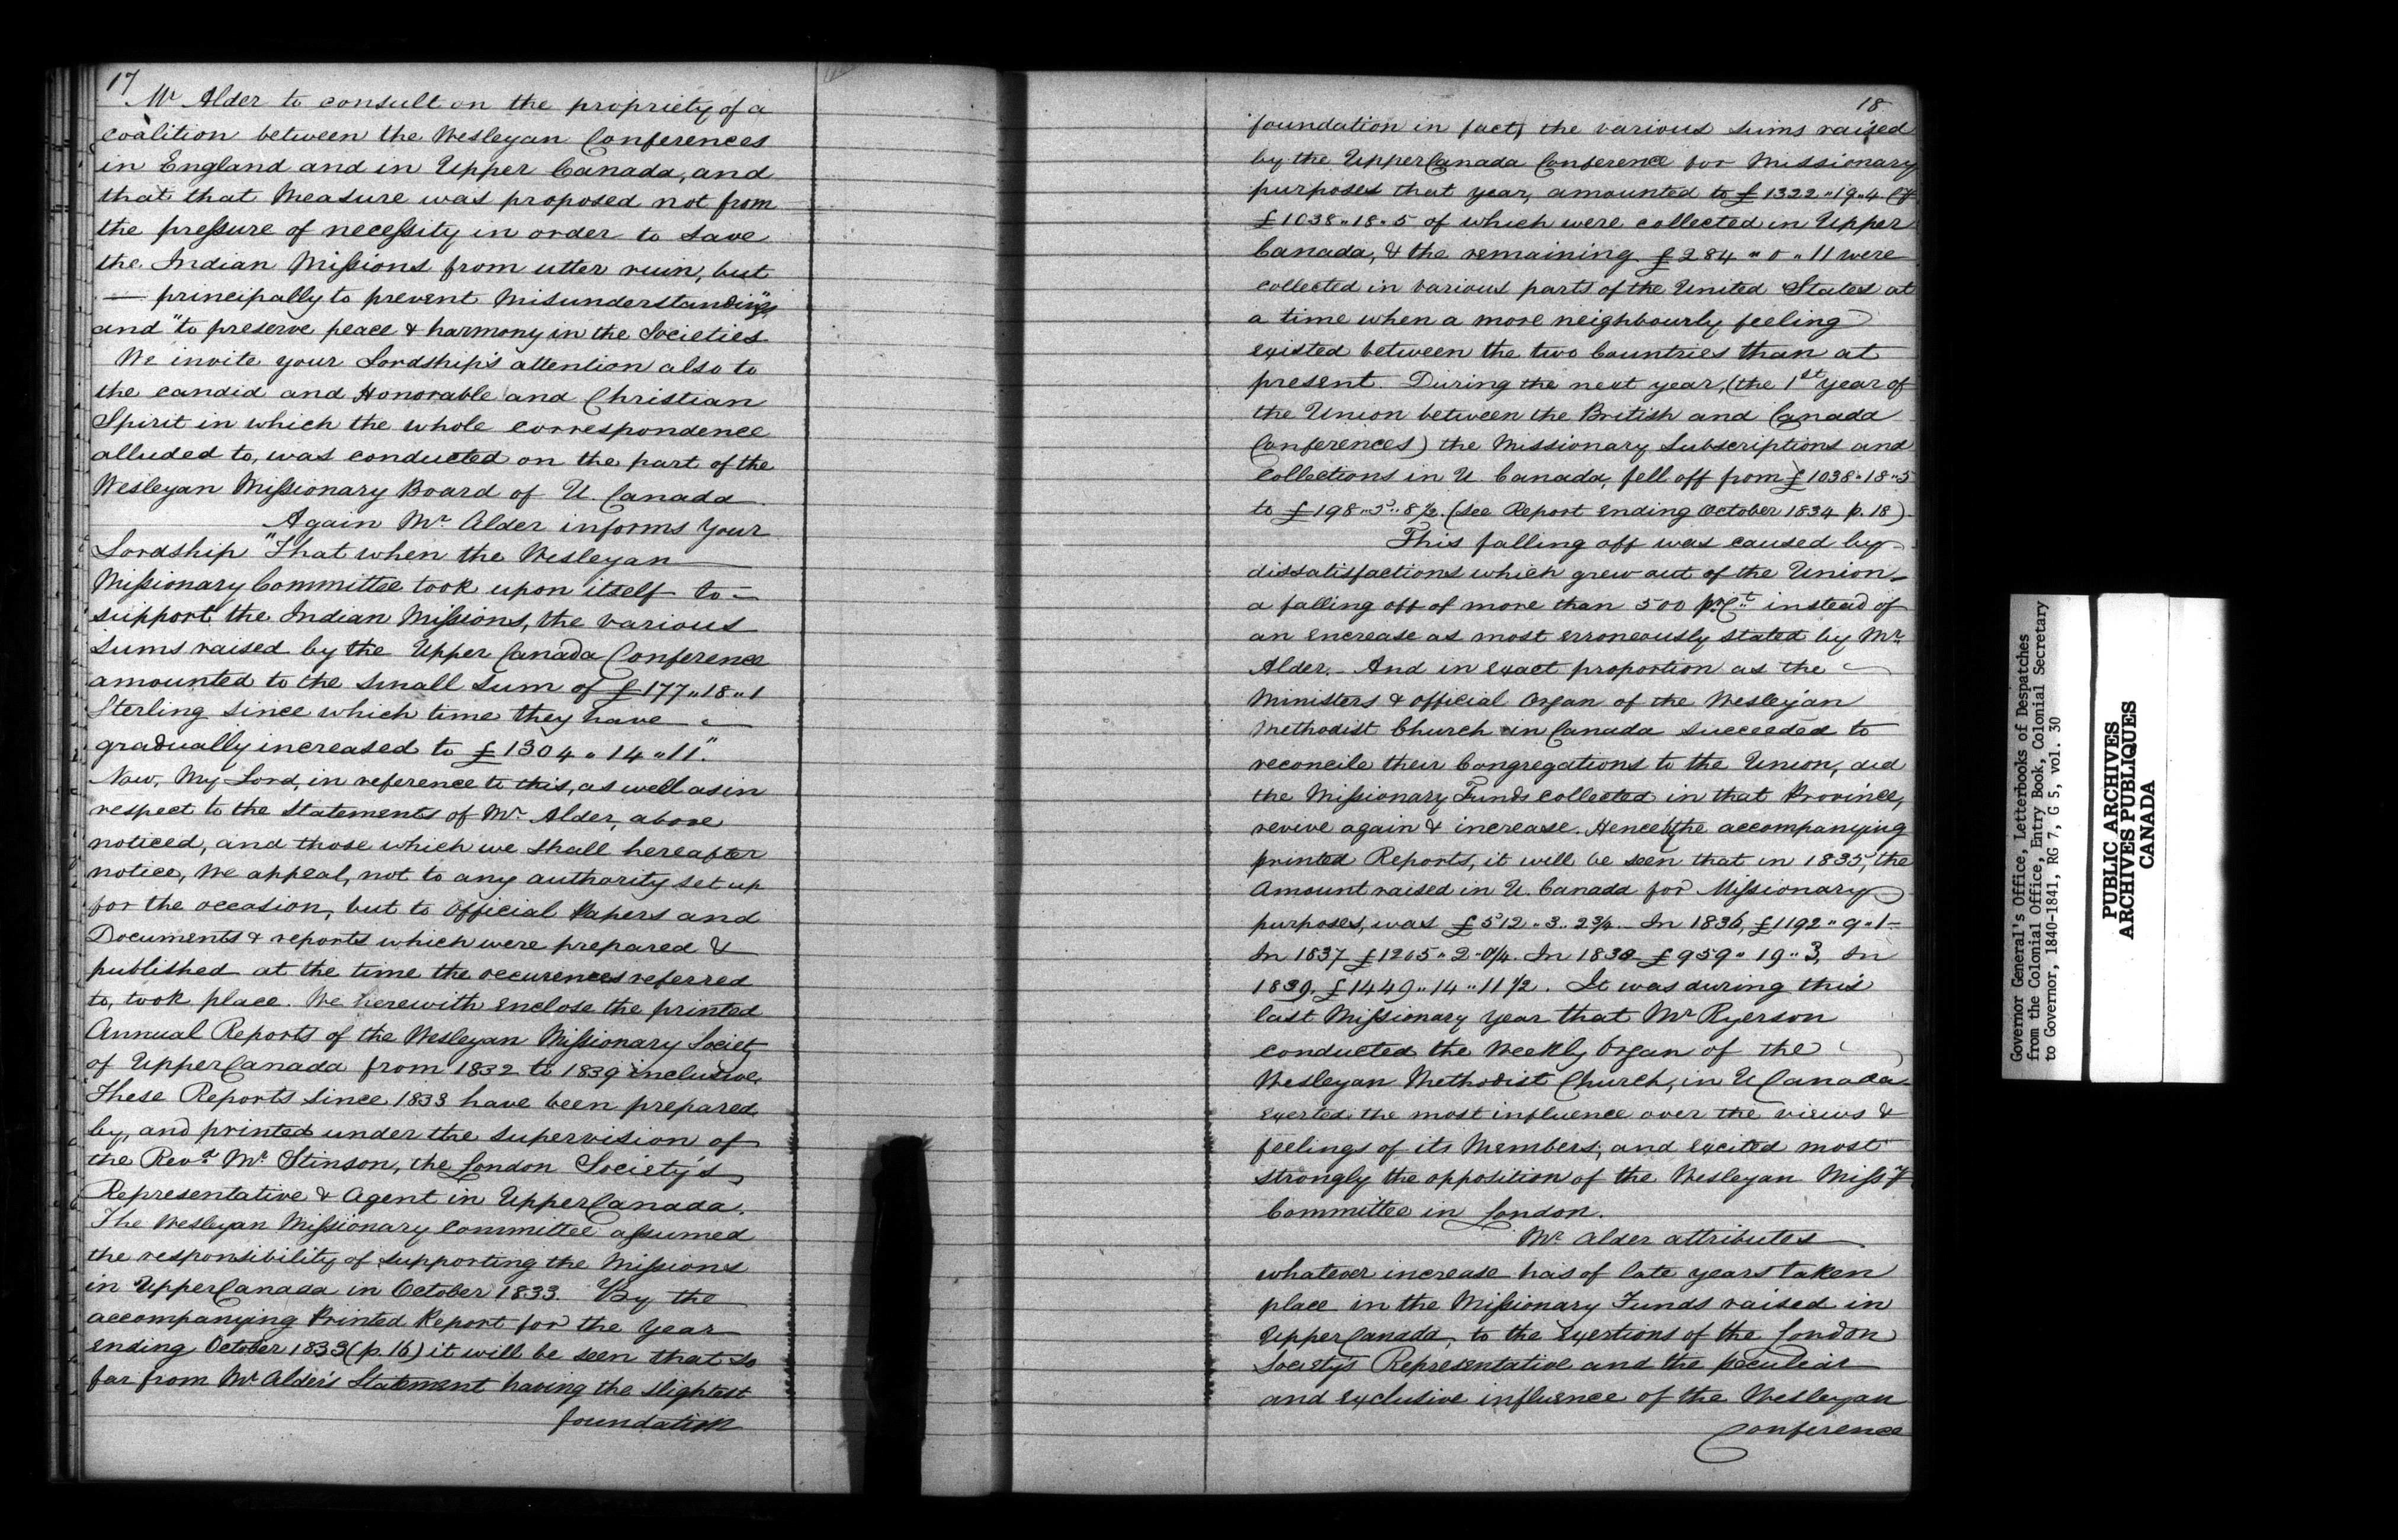 17
Mr Alder to consult on the propriety of a
coalition between the Wesleyan Conferences
in England and in Upper Canada, and
that that Measure was proposed not from
the pressure of necessity in order to save
the Indian Missions from utter ruin, but
— principally to prevent Misunderstandings
and "to preserve peace & harmony in the Societies
We invite your Lordship's attention also to
the candid and Honorable and Christian
Spirit in which the whole correspondence
alluded to, was conducted on the part of the
Wesleyan Missionary Board of U. Canada
Again Mr. Alder informs Your
Lordship "That when the Wesleyan
Missionary Committee took upon itself to
support the Indian Missions, the various
sums raised by the Upper Canada Conference
amounted to the small sum of £177"18"1
Sterling since which time they have
gradually increased to £1304"14"11".
Now, My Lord, in reference to this, as well as in
respect to the Statements of Mr. Alder, above
noticed, and those which we shall hereafter
notice, We appeal, not to any authority set up
for the occasion, but to Official Papers and
Documents & reports which were prepared &
published at the time the occurences referred
to, took place. We herewith enclose the printed
Annual Reports of the Wesleyan Missionary Society
of Upper Canada from 1832 to 1839 inclusive.
These Reports since 1833 have been prepared
by, and printed under the supervision of
the Revd. Mr. Stinson, the London Society's
Representative & Agent in Upper Canada.
The Wesleyan Missionary Committee assumed
the responsibility of supporting the Missions
in Upper Canada in October 1833. By the
accompanying Printed Report for the Year
ending October 1833 (p. 16) it will be seen that so
far from Mr Alder's Statement having the slightest
foundation
18
foundation in fact, the various sums raised
by the Upper Canada Conference for Missionary
purposes that year, amounted to £1322"19"4 Cy
£1038"18"5 of which were collected in Upper
Canada, & the remaining £284"0"11 were
collected in various parts of the United States at
a time when a more neighbourly feeling
existed between the two Countries than at
present. During the next year, (the 1st year of
the Union between the British and Canada
Conferences) the Missionary Subscriptions and
Collections in U. Canada, fell off from £1038"18"5
to £198"5"8½. (See Report ending October 1834 p. 18).
This falling off was caused by
dissatisfactions which grew out of the Union
a falling off of more than 500 pr Ct. instead of
an encrease as most erroneously stated by Mr.
Alder. And in exact proportion as the
Ministers & official Organ of the Wesleyan
Methodist Church in Canada succeeded to
reconcile their Congregations to the Union, did
the Missionary Funds collected in that Province,
revive again & increase. Hence by the accompanying
printed Reports, it will be seen that in 1835, the
Amount raised in U. Canada for Missionary
purposes, was £512"3"2¾. In 1836, £1192"9"1
In 1837 £1265"2"0¼. In 1838 £959"19"3, In
1839, £1449"14"11½. It was during this
last Missionary Year that Mr Ryerson
conducted the Weekly Organ of the
Wesleyan Methodist Church, in U Canada
exerted the most influence over the views &
feelings of its Members, and excited most
strongly the opposition of the Wesleyan Missy
Committee in London.
Mr. Alder attributes
whatever increase has of late years taken
place in the Missionary Funds raised in
Upper Canada, to the exertions of the London
Society's Representative and the peculiar
and exclusive influence of the Wesleyan
Conference
Governor General's Office, Letterbooks of Despatches
from the Colonial Office, Entry Book, Colonial Secretary
to Governor, 1840-1841, RG 7, G 5, vol. 30
PUBLIC ARCHIVES
ARCHIVES PUBLIQUES
CANADA